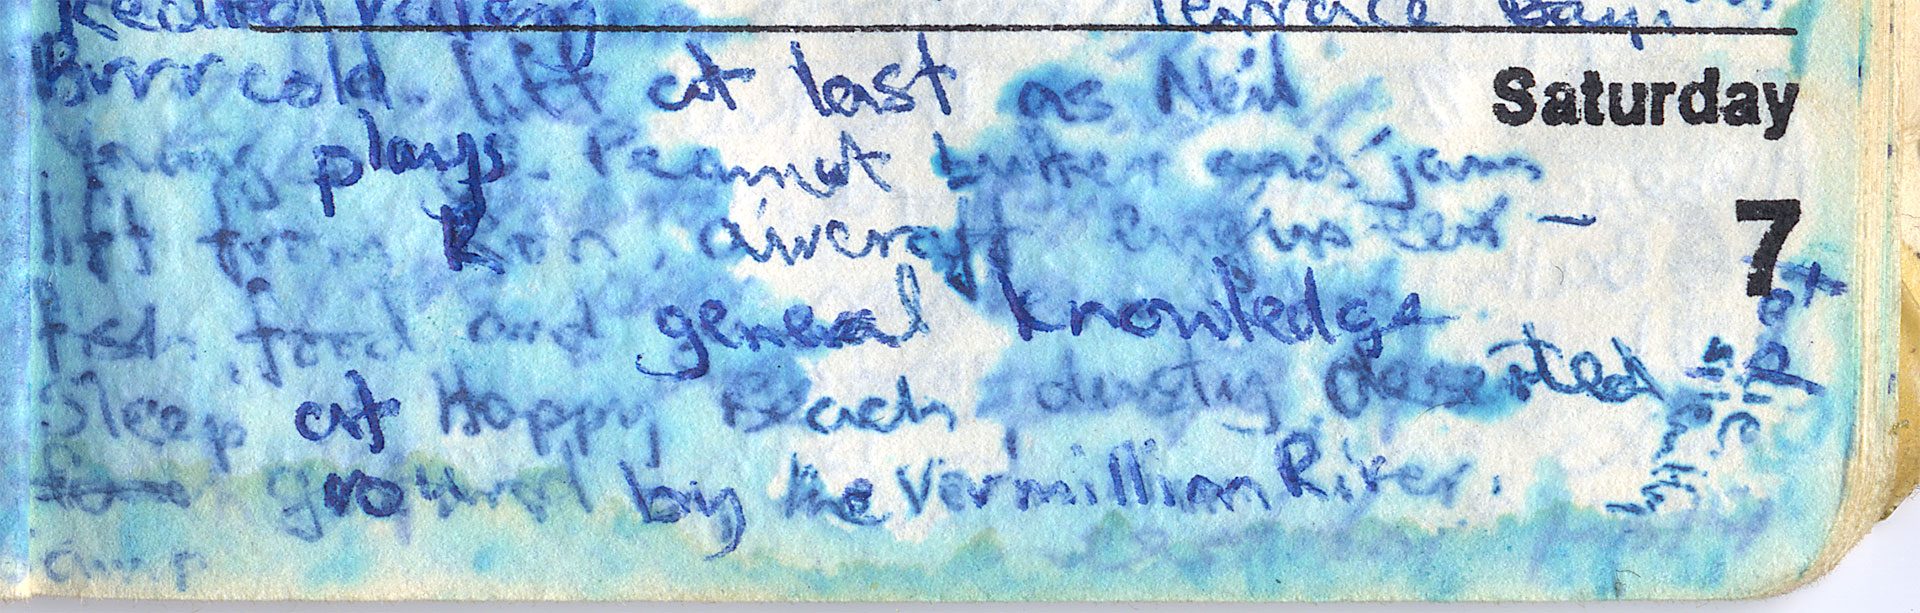 Terrace Bay.
Brrrr cold. lift at last as Neil
Young plays. Peanut butter and jam
lift from Ron, aircraft engineer -
fish, food and general knowledge
Sleep at Happy Beach dusty deserted
ground by the Vermillion River.
camp
Saturday
7